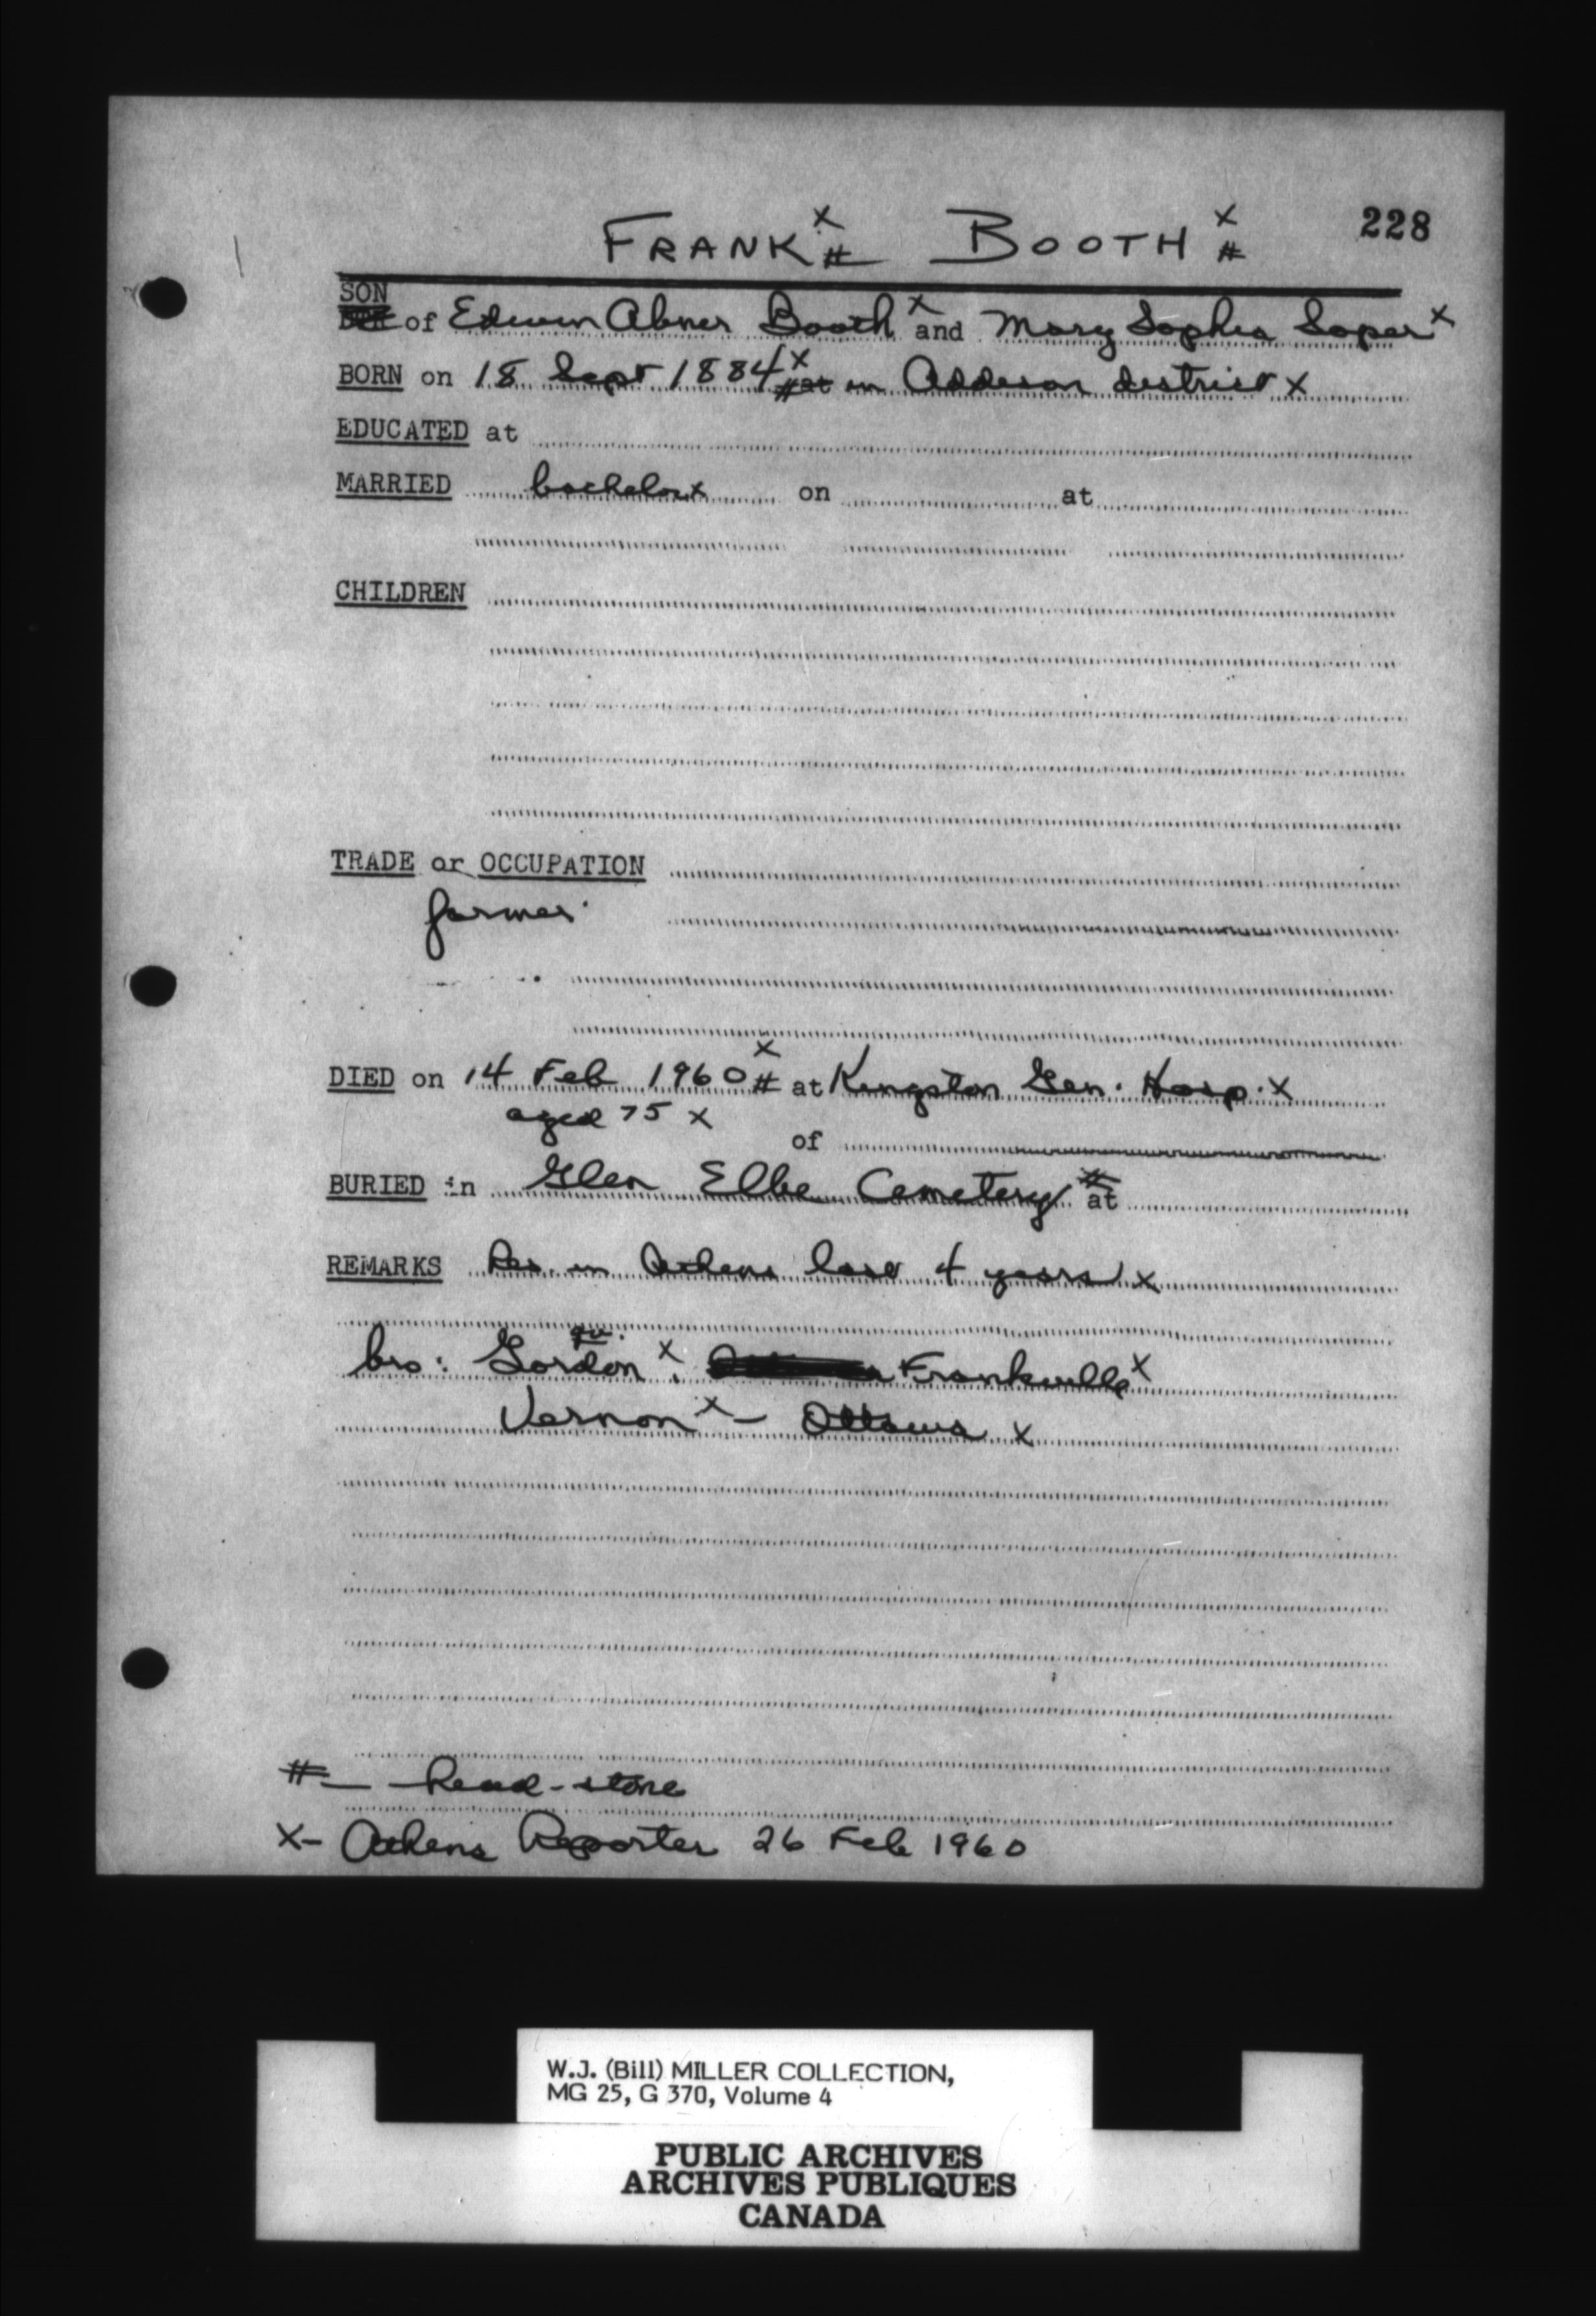 228
FRANK x # BOOTH x #
SON
of Edwin Abner Booth x and Mary Sophia Soper x
BORN on 18 Sept 1884 x # at in Addison district x
EDUCATED at
MARRIED bachelor x on at
CHILDREN
TRADE or OCCUPATION
farmer
DIED on 14 Feb 1960 x # at Kingston Gen. Hosp. x
aged 75 x
of
BURIED in Glen Elbe Cemetery # at
REMARKS Res. in Athens last 4 years x
qv.
bro: Gordon x, Frankville x
Vernon x - Ottawa x
# - head-stone
x - Athens Reporter 26 Feb 1960
W.J. (Bill) MILLER COLLECTION,
MG 25, G 370, Volume 4
PUBLIC ARCHIVES
ARCHIVES PUBLIQUES
CANADA